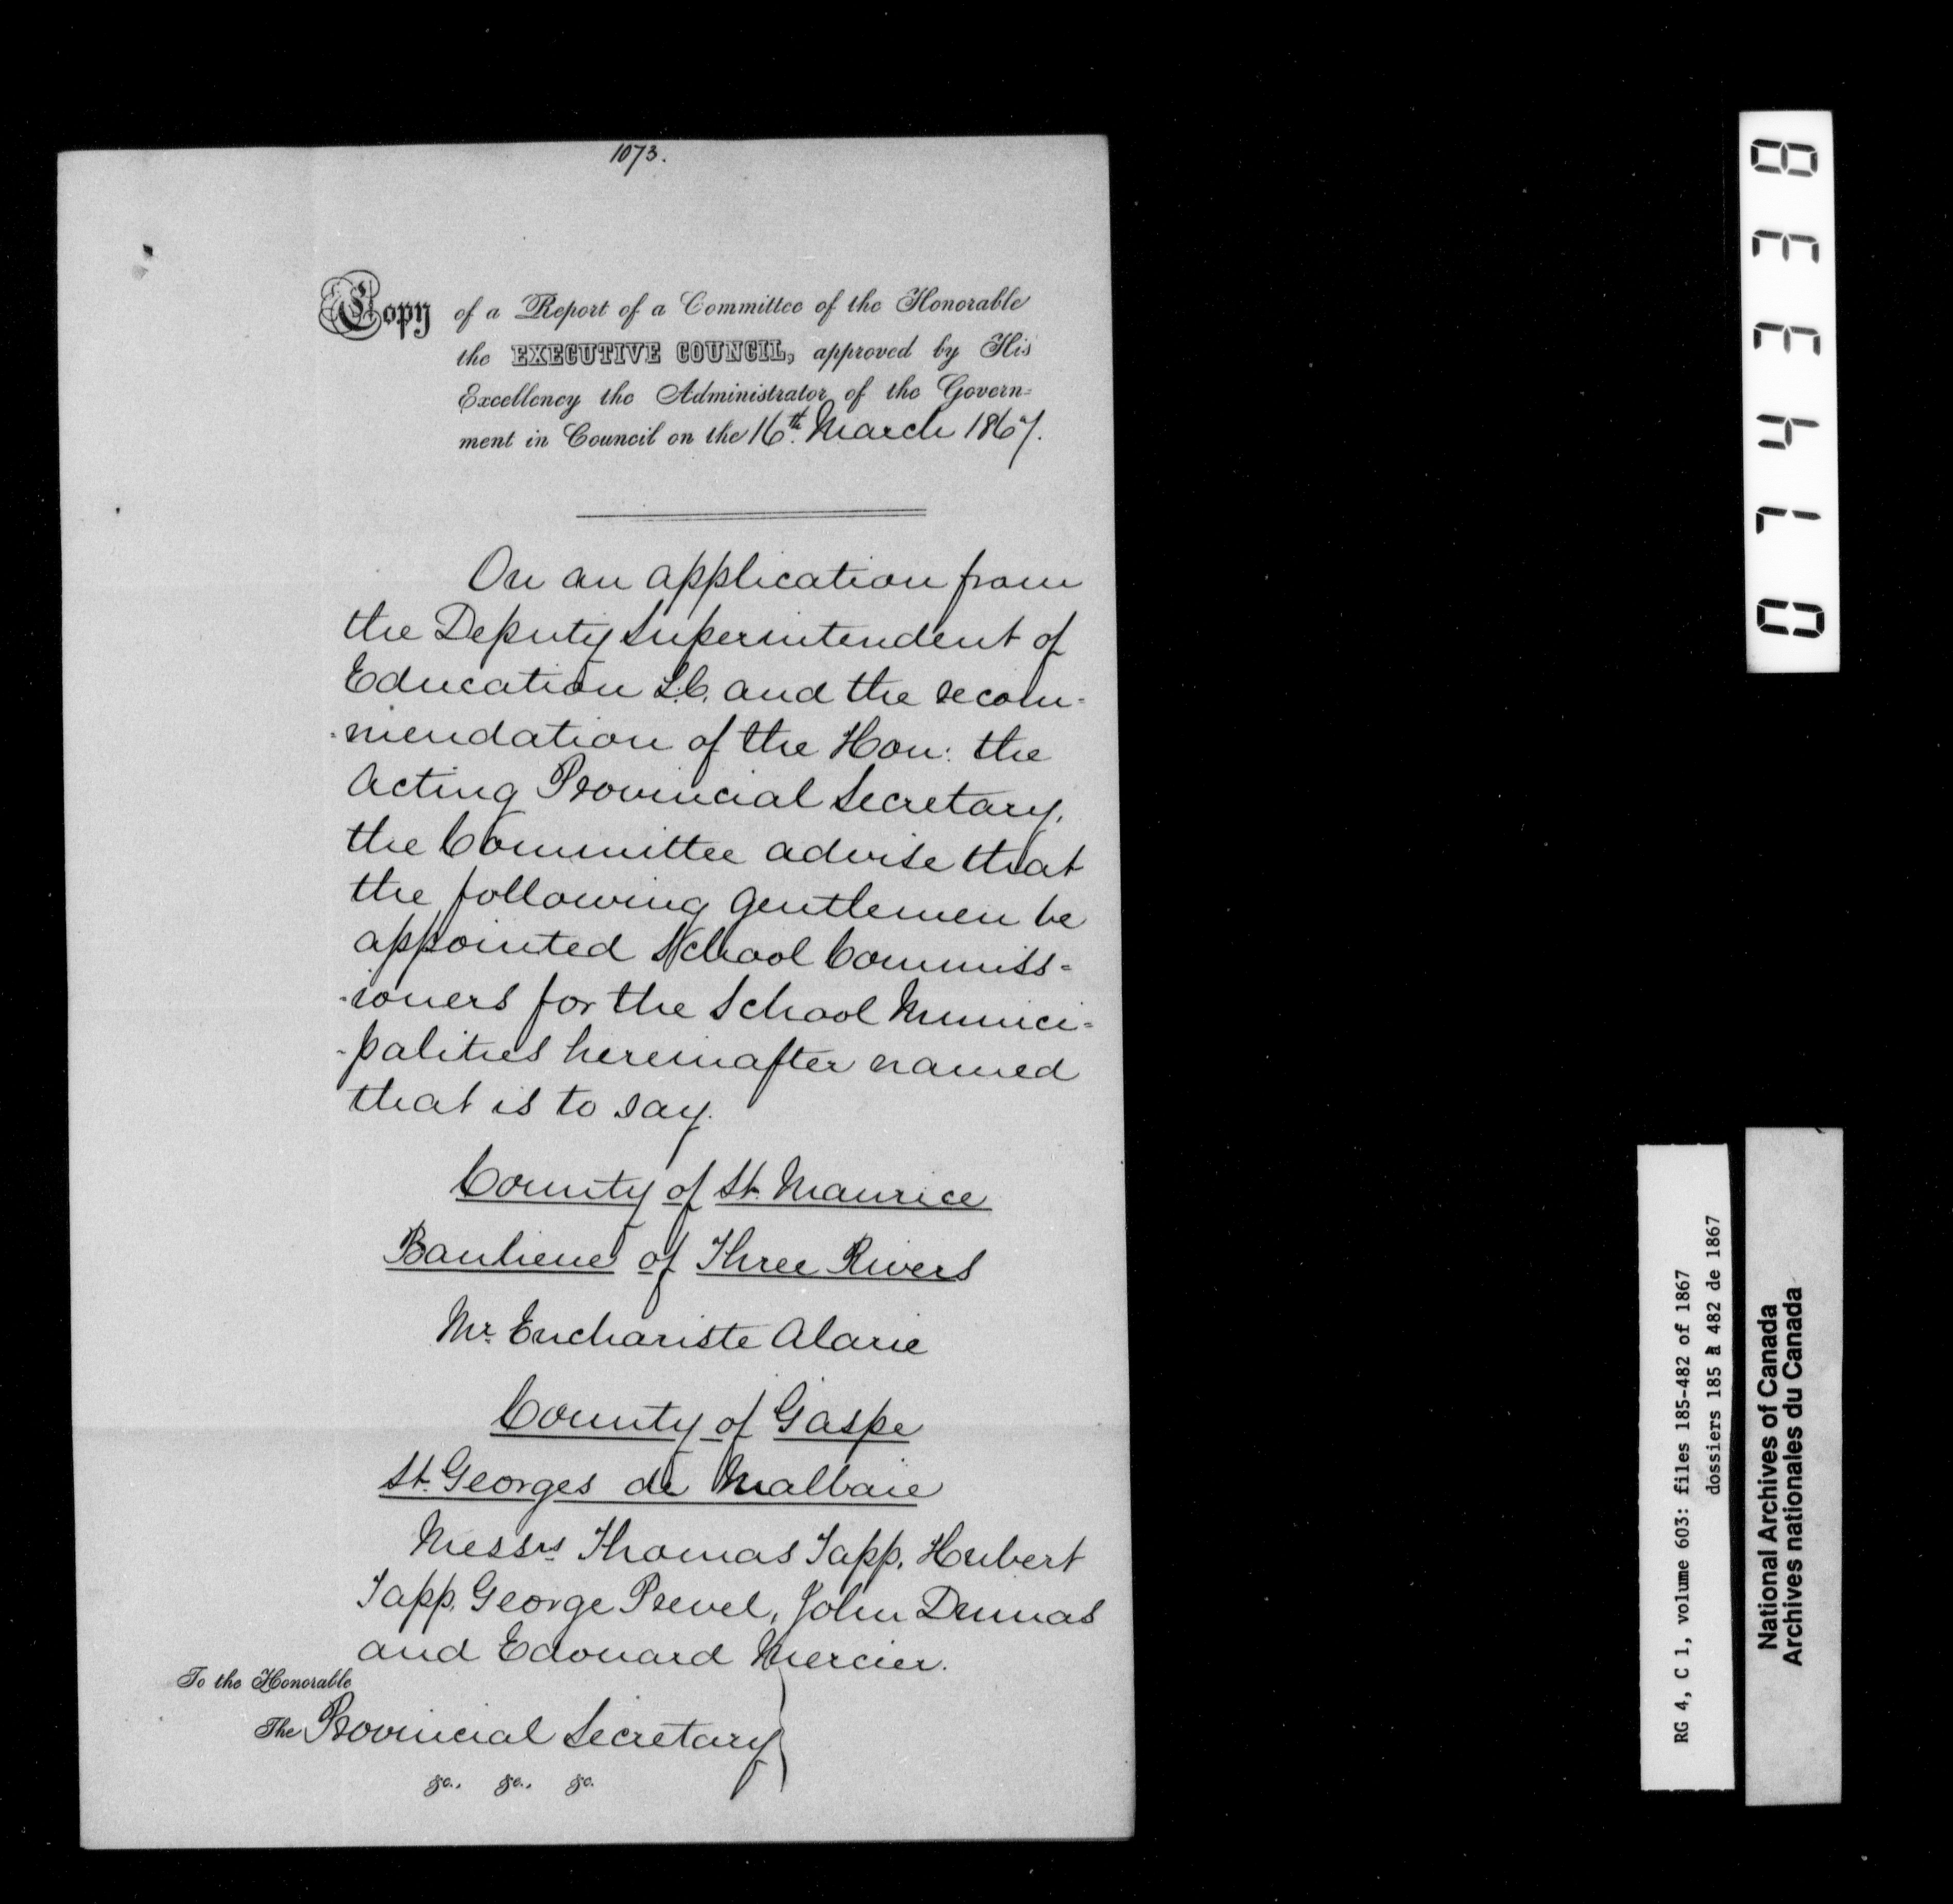 1073.
Copy of a Report of a Committee of the Honorable
the EXECUTIVE COUNCIL, approved by His
Excellency the Administrator of the Govern-
ment in Council on the 16th. March 1867.
On an application from
the Deputy Superintendent of
Education L.C. and the recom-
-mendation of the Hon: the
Acting Provincial Secretary,
the Committee advise that
the following gentlemen be
appointed School Commiss-
-ioners for the School Munici-
-palities hereinafter named
that is to say.
County of St. Maurice
Banlieue of Three Rivers
Mr. Euchariste Alarie
County of Gaspe
St. Georges de Malbaie
Messrs Thomas Tapp, Hubert
Tapp, George Prevel, John Dumas
and Edouard Mercier.
To the Honorable
The Provincial Secretary
&c., &c., &c.
0174338
RG 4, C 1, volume 603: files 185-482 of 1867
dossiers 185 à 482 de 1867
National Archives of Canada
Archives nationales du Canada